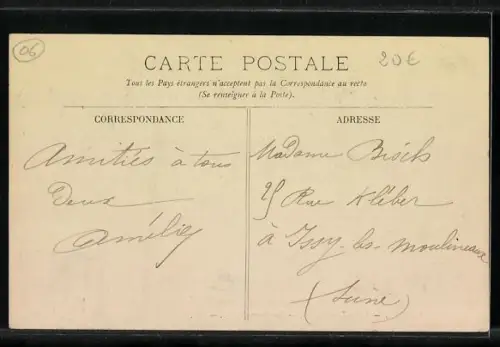 06
CARTE POSTALE
20€
Tous les Pays étrangers n'acceptent pas la Correspondance au recto
(Se renseigner à la Poste).
CORRESPONDANCE
Amitiés à tous
Deux
Amélie
ADRESSE
Madame
Rue Kléber
à Issy-les-Moulineaux
(Seine)